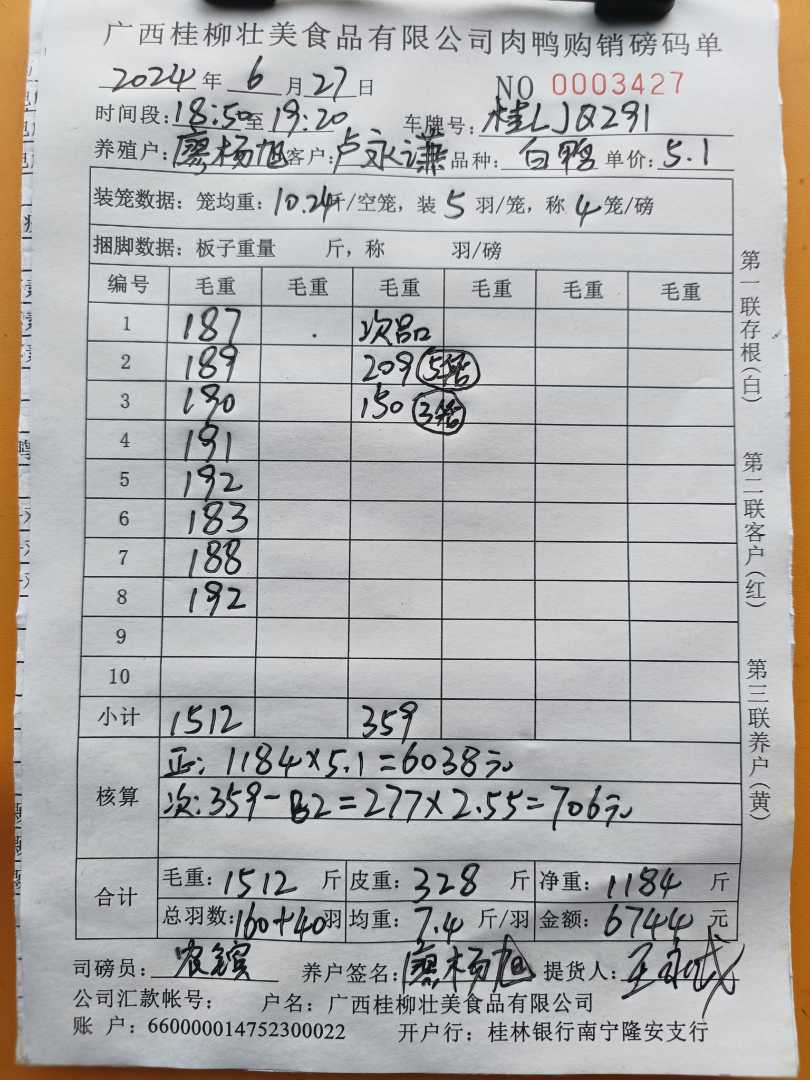 广西桂柳壮美食品有限公司肉鸭购销磅码单
2024年 6月27日 NO 0003427
时间段:18:50至19:20 车牌号:桂LJQ291
养殖户:廖杨旭 客户:卢永谦 品种:白鸭 单价:5.1
装笼数据:笼均重:10.24斤/空笼,装5羽/笼,称4笼/磅
捆脚数据:板子重量 斤,称 羽/磅
编号 毛重 毛重 毛重 毛重 毛重 毛重
1 187 次品
2 189 209 5笼
3 190 150 3笼
4 191
5 192
6 183
7 188
8 192
9
10
小计 1512 359
核算 正:1184×5.1=6038元
次:359-82=277×2.55=706元
合计 毛重:1512斤 皮重:328斤 净重:1184斤
总羽数:160+40羽 均重:7.4斤/羽 金额:6744元
司磅员:农宾 养户签名:廖杨旭 提货人:
公司汇款帐号: 户名:广西桂柳壮美食品有限公司
账户:660000014752300022 开户行:桂林银行南宁隆安支行
第一联存根(白)
第二联客户(红)
第三联养户(黄)